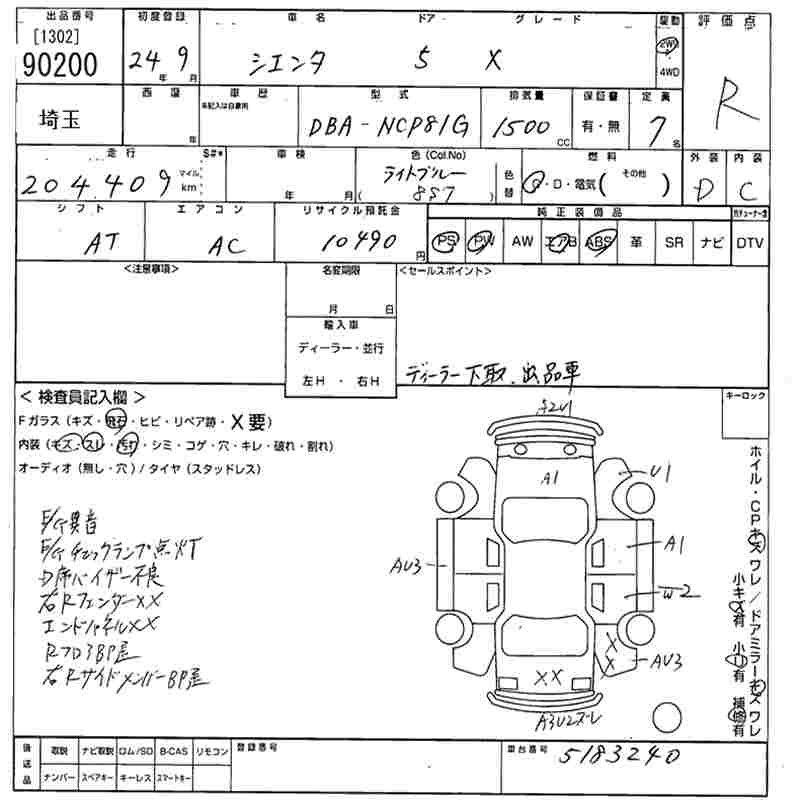 出品番号 初度登録 車名 ドア グレード 駆動 評価点
[1302]
90200 24年 9月 シエンタ 5 X 2WD 4WD R
埼玉 西暦 年 車歴 未記入は自家用 型式 DBA-NCP81G 排気量 1500CC 保証書 有・無 定員 7名
走行 S#* 車検 色(Col.No) 燃料 外装 内装
204,409 マイル km 年 月 ライトブルー ( 8S7 ) 色替 G・D・電気 ( その他 ) D C
シフト エアコン リサイクル預託金 純正装備品
AT AC 10490円 PS PW AW エアB ABS 革 SR ナビ DTV
<注意事項> 名変期限 <セールスポイント>
月 日
輸入車
ディーラー・並行
左H ・ 右H
ディーラー下取、出品車
< 検査員記入欄 > キーロック
Fガラス (キズ・飛石・ヒビ・リペア跡・X要)
内装 (キズ・スレ・汚れ・シミ・コゲ・穴・キレ・破れ・割れ)
オーディオ (無し・穴) / タイヤ (スタッドレス)
E/G異音
E/Gチェックランプ点灯
D席バイザー不良
右RフェンダーXX
エンドパネルXX
RフロアBP歪
右RサイドメンバーBP歪
A2U1
A1
U1
AU3
A1
W2
XX
XX
AU3
A3U2ズレ
ホイル・CPキズ ワレ/ドアミラーキズ ワレ
小キズ有 小凹有 補修有
後送品 取説 ナビ取説 ロム/SD B-CAS リモコン 登録番号 車台番号
ナンバー スペアキー キーレス スマートキー 5183240